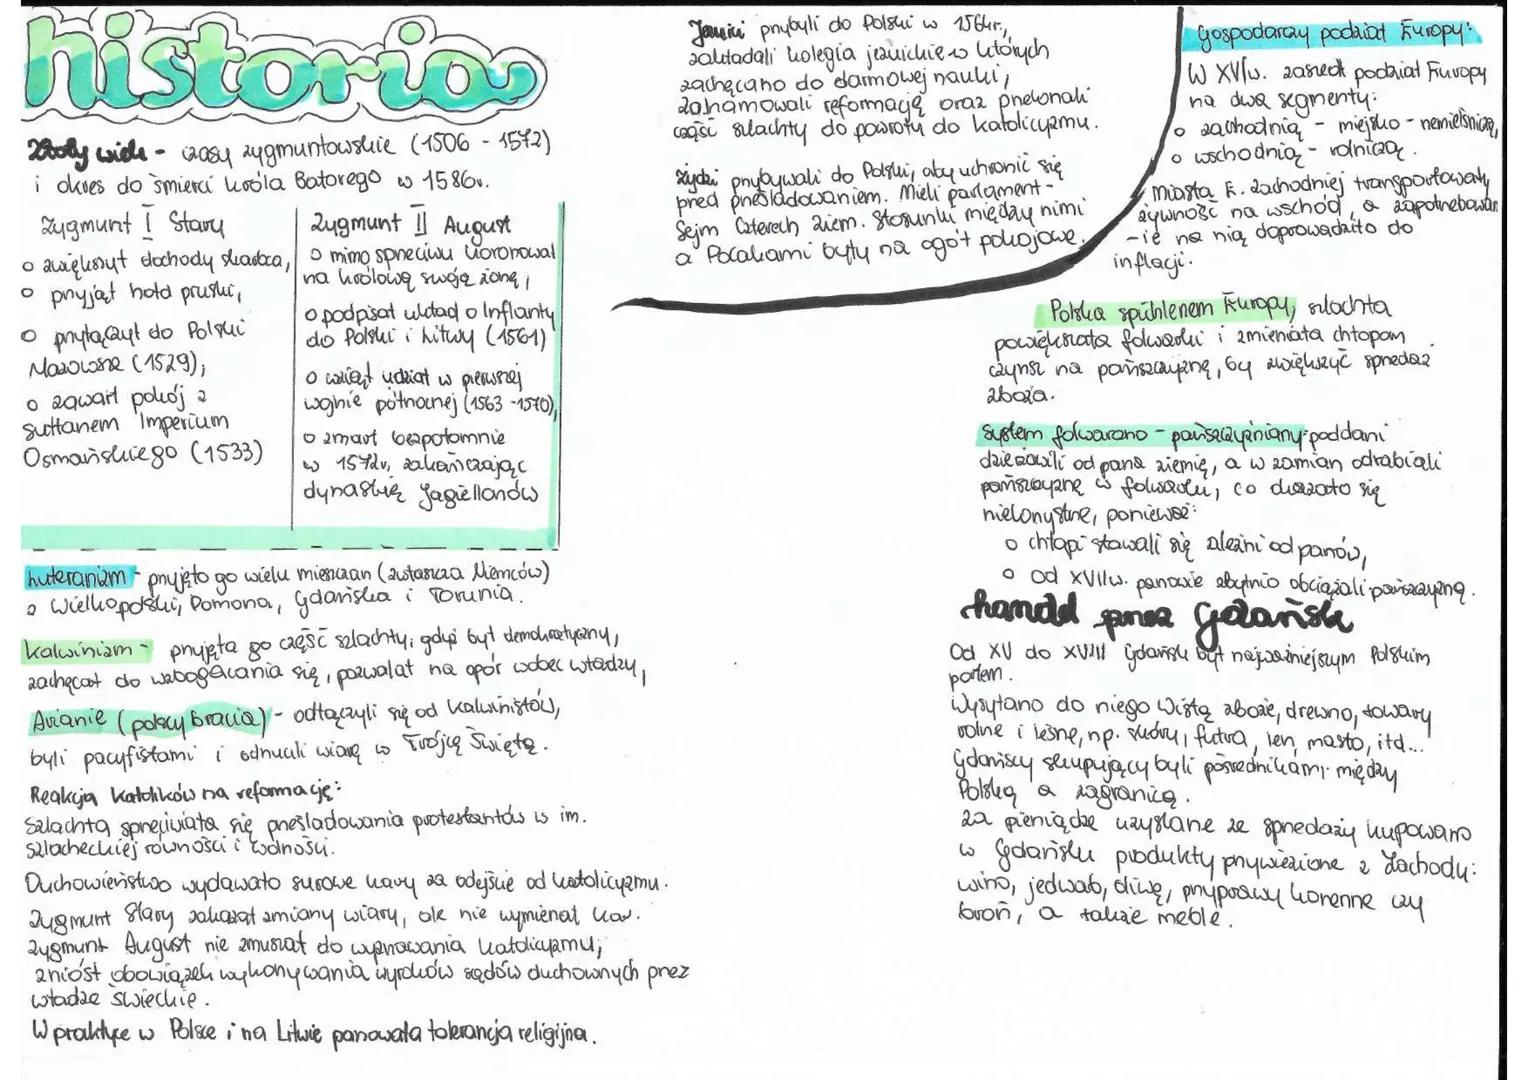 historia
Złoty wiek - czasy zygmuntowskie (1506 - 1572)
i okres do śmierci króla Batorego w 1586r.
Zygmunt I Stary
o zwiększył dochody skarbca,
o przyjął hołd pruski,
o przyłączył do Polski
Mazowsze (1529),
o zawarł pokój z
sułtanem Imperium
Osmańskiego (1533)
Zygmunt II August
o mimo sprzeciwu koronował
na królową swoją żonę,
o podpisał układ o Inflanty
do Polski i Litwy (1561)
o wziął udział w pierwszej
wojnie północnej (1563 - 1570),
o zmarł bezpotomnie
w 1572r, zakańczając
dynastię Jagiellonów
Luteranizm - przyjęto go wielu mieszczan (zwłaszcza Niemców)
z Wielkopolski, Pomorza, Gdańska i Torunia.
Kalwinizm - przyjęła go część szlachty, gdyż był demokratyczny,
zachęcał do wzbogacania się, pozwalał na opór wobec władzy,
Arianie (polscy bracia) - odłączyli się od kalwinistów,
byli pacyfistami i odrzucali wiarę w Trójcę Świętą.
Reakcja katolików na reformację:
Szlachta sprzeciwiała się prześladowania protestantów w im.
szlacheckiej równości i wolności.
Duchowieństwo wydawało surowe kary za odejście od katolicyzmu.
Zygmunt Stary zakazał zmiany wiary, ale nie wymierzał kar.
Zygmunt August nie zmuszał do wyznawania katolicyzmu;
zniósł obowiązek wykonywania wyroków sądów duchownych przez
władze świeckie.
W praktyce w Polsce i na Litwie panowała tolerancja religijna.
Jezuici przybyli do Polski w 1564r,
zakładali kolegia jezuickie w których
zachęcano do darmowej nauki,
zahamowali reformację oraz przekonali
część szlachty do powrotu do katolicyzmu.
Żydzi przybywali do Polski, aby uchronić się
przed prześladowaniem. Mieli parlament -
Sejm Czterech Ziem. Stosunki między nimi
a Polakami były na ogół pokojowe.
Gospodarczy podział Europy:
W XVI w. zaszedł podział Europy
na dwa segmenty:
o zachodnią - miejsko - rzemieślniczą,
o wschodnią - rolniczą.
Miasta E. Zachodniej transportowały
żywność na wschód, a zapotrzebowan
-ie na nią doprowadziło do
inflacji.
Polska spichlerzem Europy, szlachta
powiększała folwarki i zmieniała chłopom
czynsz na pańszczyznę, by zwiększyć sprzedaż
zboża.
System folwarczno - pańszczyźniany - poddani
dzierżawili od pana ziemię, a w zamian odrabiali
pańszczyznę w folwarku, co okazało się
niekorzystne, ponieważ:
o chłopi stawali się zależni od panów,
o od XVII w. panowie zbytnio obciążali pańszczyzną.
handel przez Gdańsk
Od XV do XVIII Gdańsk był najważniejszym Polskim
portem.
Wysyłano do niego Wisłą zboże, drewno, towary
rolne i leśne, np. skóry, futra, len, masło, itd...
Gdańscy skupujący byli pośrednikami między
Polską a zagranicą.
Za pieniądze uzyskane ze sprzedaży kupowano
w Gdańsku produkty przywiezione z Zachodu:
wino, jedwab, oliwę, przyprawy korzenne czy
broń, a także meble.